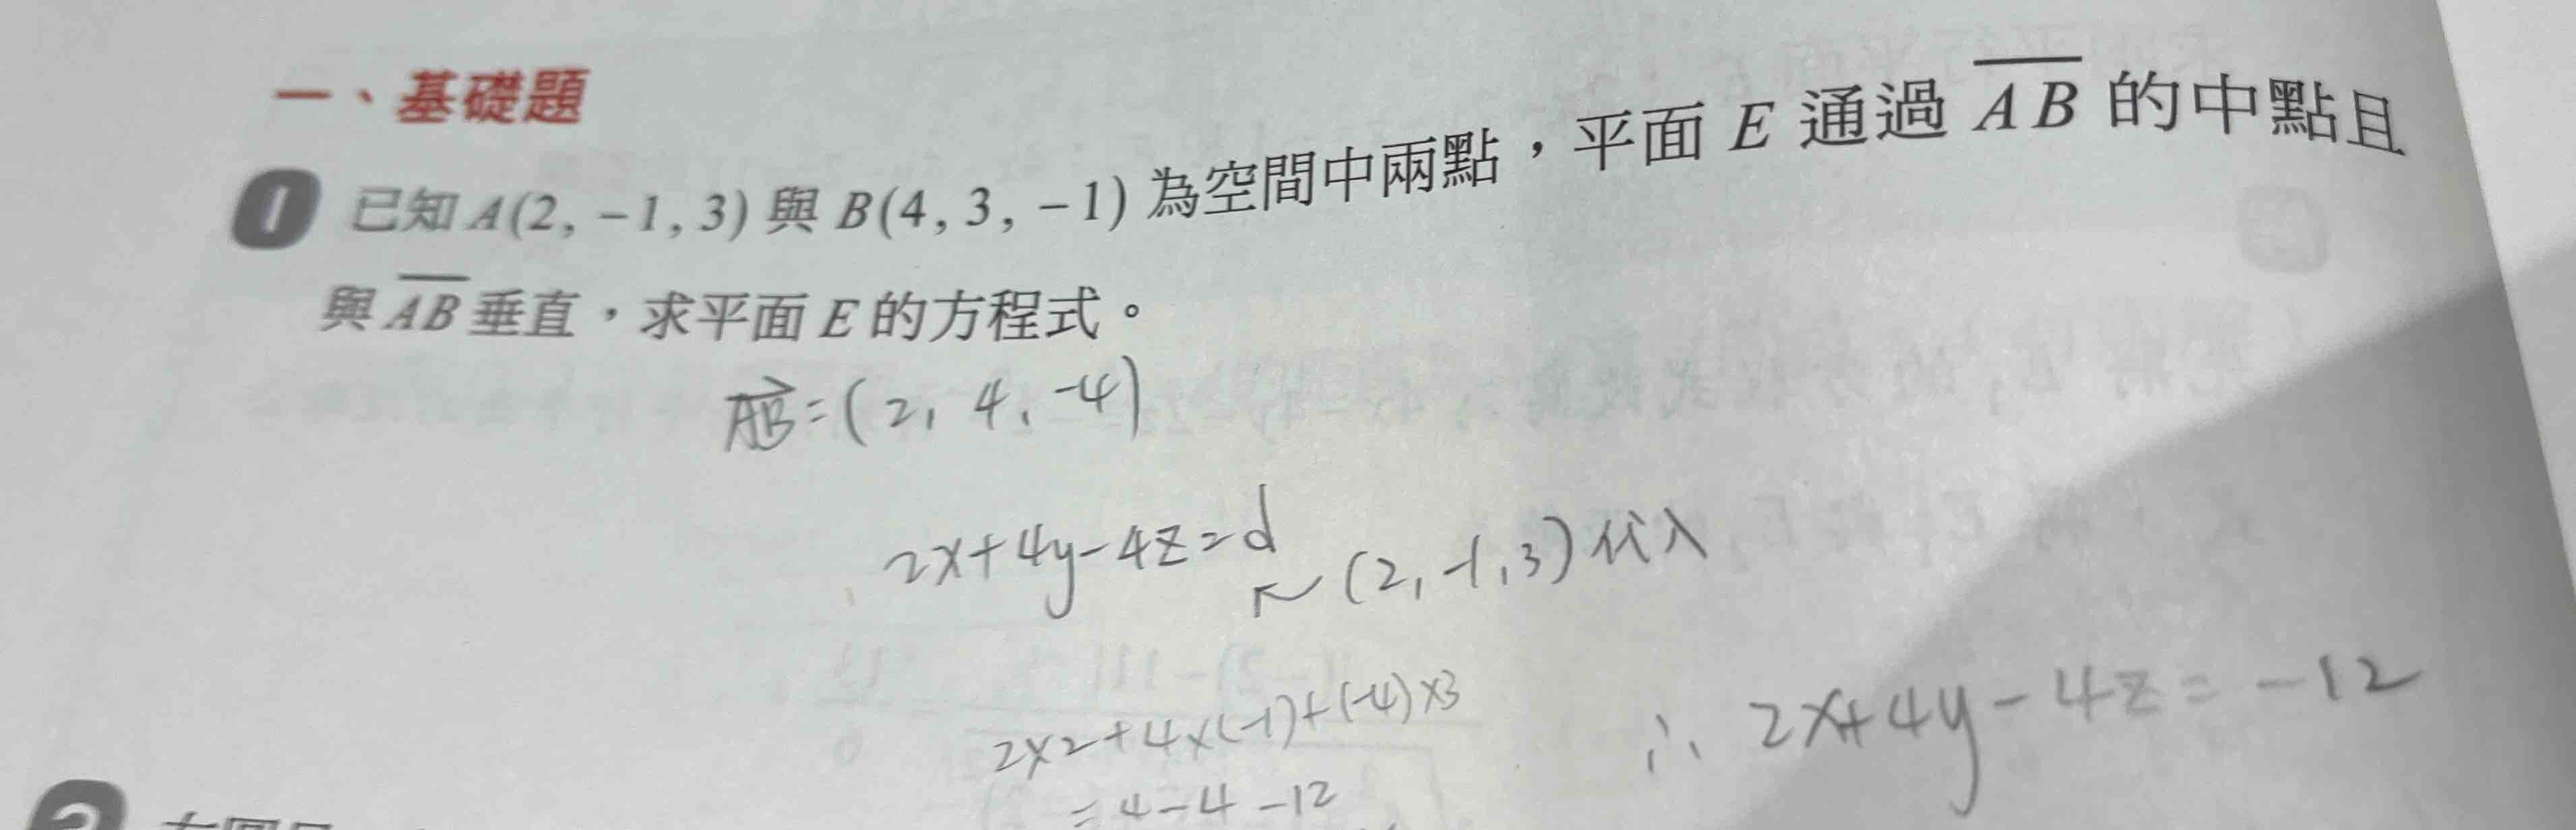 一、基礎題
1 已知 A(2, -1, 3) 與 B(4, 3, -1) 為空間中兩點，平面 E 通過 \overline{AB} 的中點且
與 \overline{AB} 垂直，求平面 E 的方程式。
\overrightarrow{AB} = (2, 4, -4)
2x+4y-4z=d
(2, -1, 3) 代入
2×2+4×(-1)+(-4)×3
= 4-4-12
∴ 2x+4y-4z=-12
2